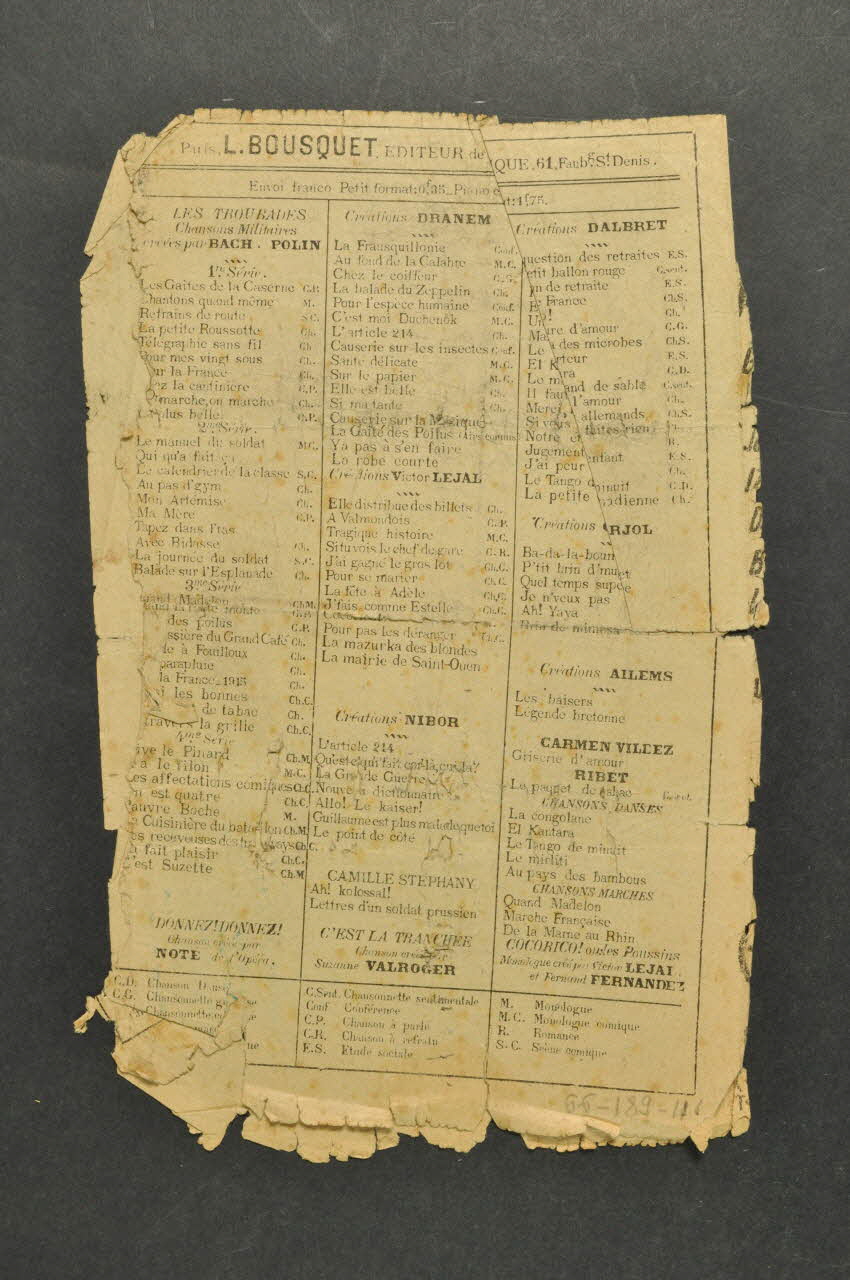 Paris, L. BOUSQUET, EDITEUR de QUE, 61, Faubg St Denis.
Envoi franco Petit format: 0f35_ Piano 1f75.
LES TROUBADES
Chansons Militaires
créées par BACH. POLIN
1re Série.
Les Gaités de la Caserne C.P.
Chantons quand même M.
Refrains de route S.C.
La petite Roussotte Ch.
Télégraphie sans fil Ch.
Pour mes vingt sous Ch.
ur la France Ch.
ez la cantinière C.P.
marche, on marche Ch.
plus belle C.P.
2me Série.
Le manuel du soldat M.C.
Qui qu'a fait ça
Le calendrier de la classe S.C.
Au pas d'gym Ch.
Mon Artémise Ch.
Ma Mère C.P.
Tapez dans l'tas
Avec Bidasse Ch.
La journée du soldat S.C.
Balade sur l'Esplanade Ch.
3me Série
uand Madelon Ch.M.
des poilus C.P.
ssière du Grand Café Ch.
le à Fouilloux Ch.
parapluie Ch.
la France_1915 Ch.
i les bonnes Ch.C.
de tabac Ch.
travers la grille Ch.C.
4me Série
ive le Pinard Ch.M.
a le filon M.C.
es affectations comiques
n est quatre Ch.C.
auvre Boche M.
Cuisinière du bataillon Ch.M.
es receveuses des tramways Ch.C.
a fait plaisir Ch.C.
est Suzette Ch.M
DONNEZ! DONNEZ!
Chanson créée par
NOTE de l'Opéra.
Créations DRANEM
La Frausquillonie Conf.
Au fond de la Calabre M.C.
Chez le coiffeur C.G.
La balade du Zeppelin Ch.
Pour l'espèce humaine Conf.
C'est moi Duchenôk M.C.
L'article 214 Ch.
Causerie sur les insectes Conf.
Santé délicate M.C.
Sur le papier M.C.
Elle est belle Ch.
Si ma tante Ch.
Causerie sur la Musique
La Gaîté des Poilus (Airs connus)
Y'a pas à s'en faire
La robe courte
Créations Victor LEJAL
Elle distribue des billets Ch.
A Valmondois C.P.
Tragique histoire M.C.
Si tu vois le chef de gare C.R.
J'ai gagné le gros lot Ch.C.
Pour se marier Ch.C.
La fête à Adèle Ch.C.
J'fais comme Estelle Ch.C.
Pour pas les déranger Ch.C.
La mazurka des blondes
La mairie de Saint-Ouen
Créations NIBOR
L'article 214
Qu'est c'qui fait cor-là, cor-là?
La Grande Guerre
Nouveau dictionnaire
Allo! Le kaiser!
Guillaume est plus malade que toi
Le point de côté
CAMILLE STEPHANY
Ah! kolossal!
Lettres d'un soldat prussien
C'EST LA TRANCHÉE
Chanson créée par
Suzanne VALROGER
Créations DALBRET
question des retraites E.S.
etit ballon rouge C.sent.
n de retraite E.S.
France Ch.S.
Un ! Ch.
Ma re d'amour C.G.
Le des microbes Ch.S.
El K rteur E.S.
Le m ara C.D.
Il faut and de sable C.sent.
Merci l'amour Ch.
Si vous allemands Ch.S.
Notre et faites rien Ch.
Jugement R.
J'ai peur enfant E.S.
Le Tango Ch.
La petite minuit C.D.
adienne Ch.
Créations ARJOL
Ba-da-la-boun
P'tit brin d'muguet
Quel temps superbe
Je n'veux pas
Ah! Yaya
Brin de mimosa
Créations AILEMS
Les baisers
Légende bretonne
CARMEN VILDEZ
Griserie d'amour
RIBET
Le paquet de tabac
CHANSONS DANSES
La congolane
El Kantara
Le Tango de minuit
Le mirliti
Au pays des bambous
CHANSONS MARCHES
Quand Madelon
Marche Française
De la Marne au Rhin
COCORICO! ou les Poussins
Monologue créé par Victor LEJAL
et Fernand FERNANDEZ
C.D. Chanson Danse
C.G. Chansonnette g se
Chansonnette co
C.Sent. Chansonnette sentimentale
Conf Conférence
C.P. Chanson à parlé
C.R. Chanson à refrain
E.S. Etude sociale
M. Monologue
M.C. Monologue comique
R. Romance
S.C. Scène comique
66-189-111